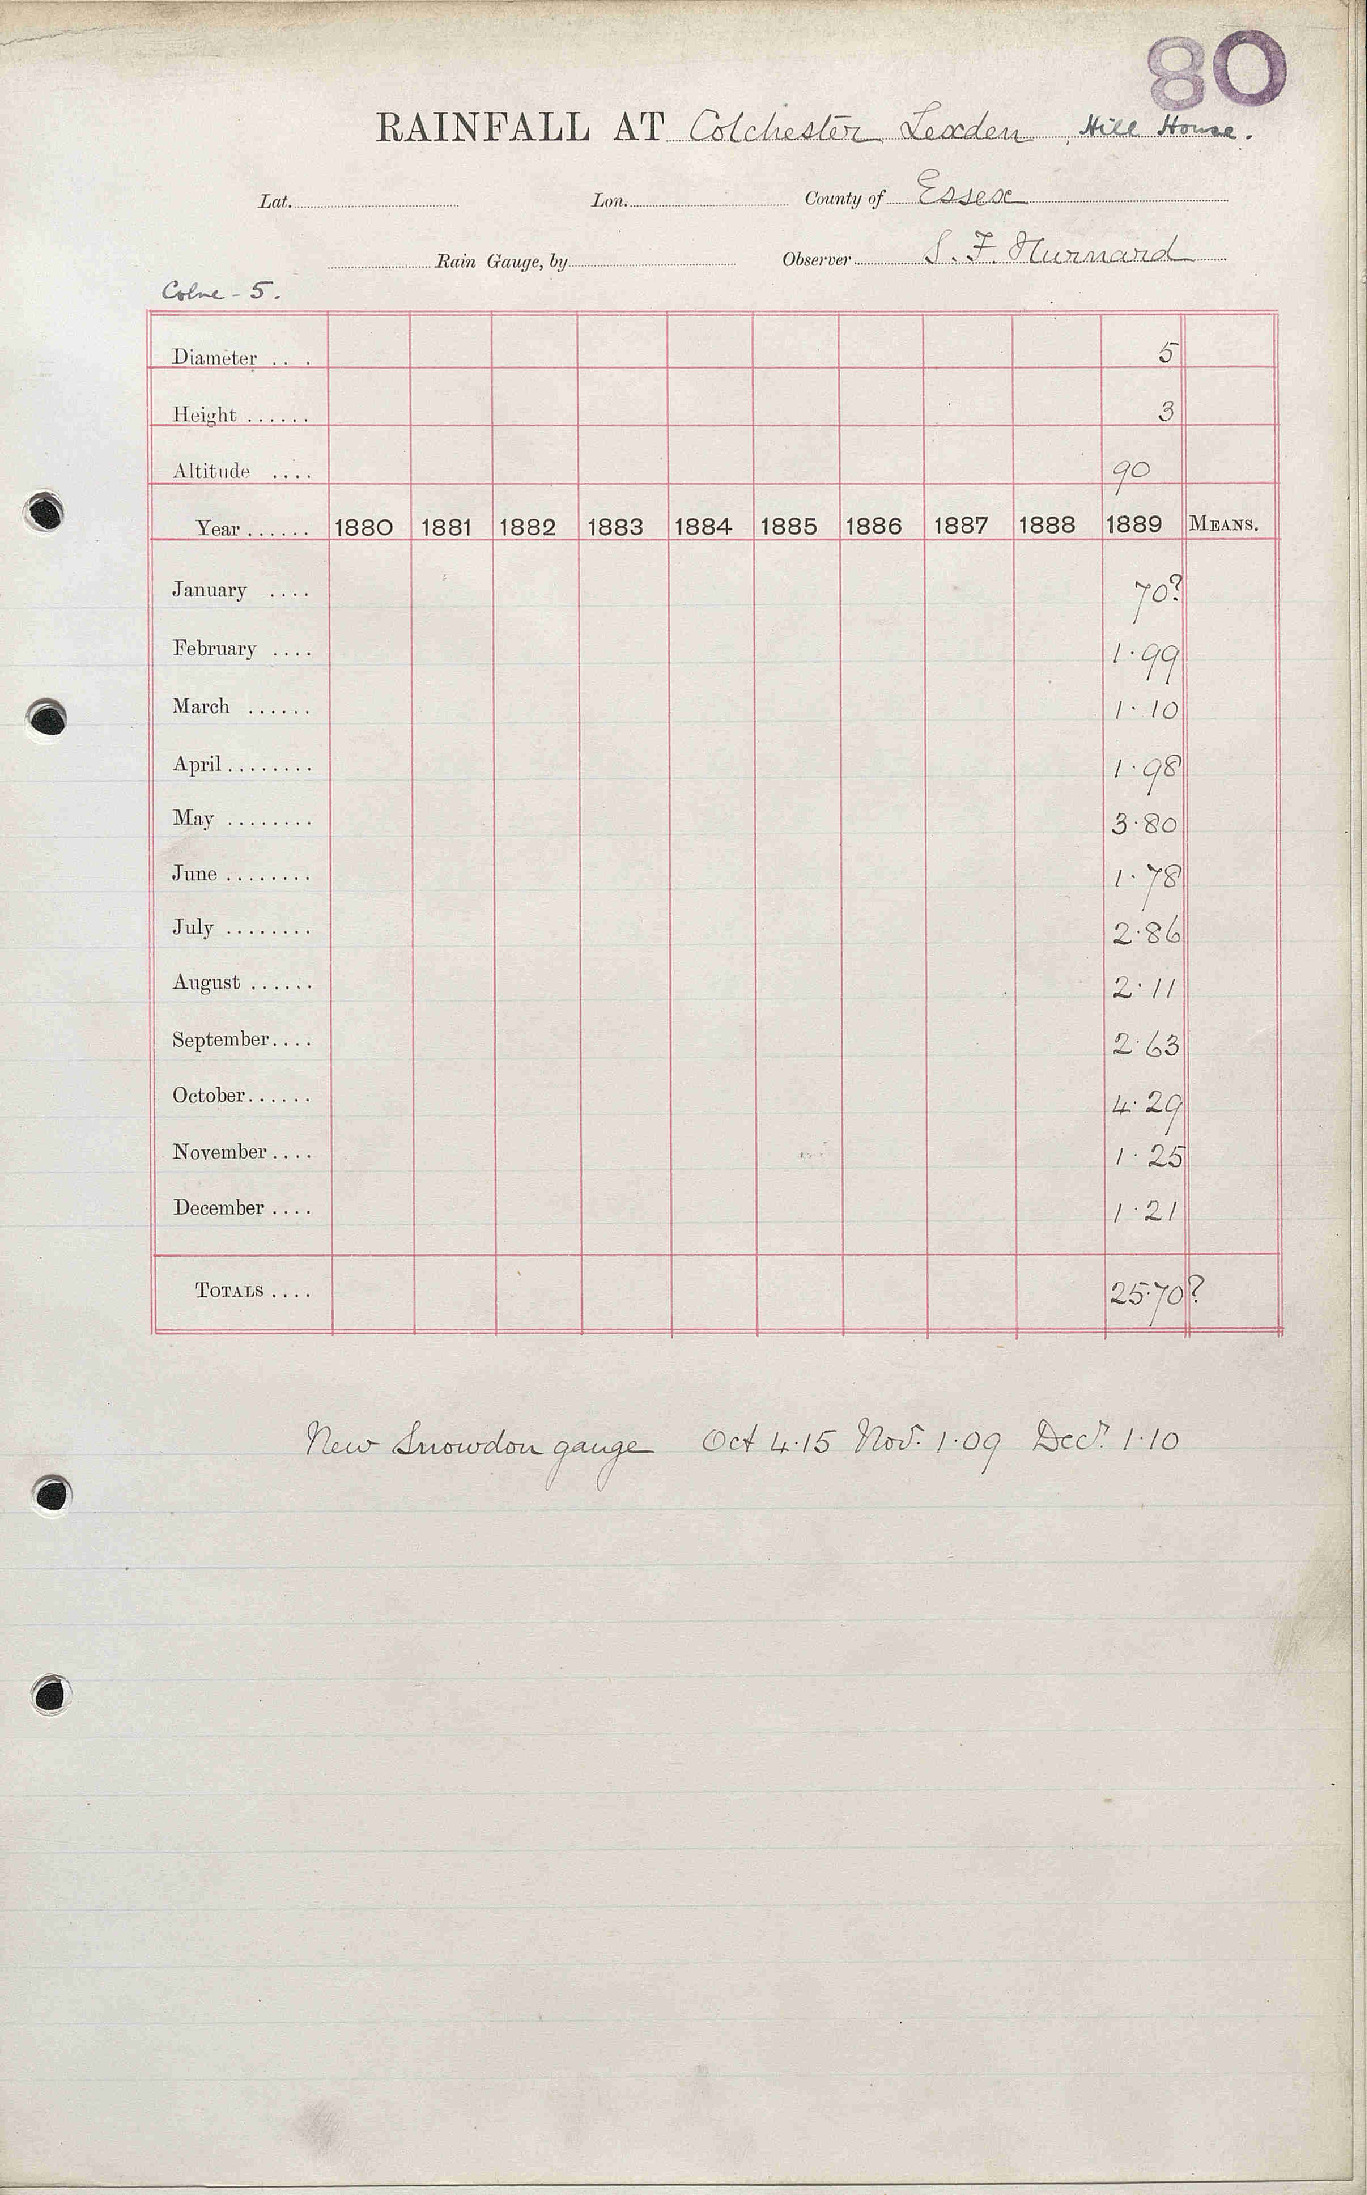 80
RAINFALL AT Colchester Lexden, Hill House.
Lat. Lon. County of Essex
Rain Gauge, by Observer S. F. Hurnard
Colne - 5.
Diameter ... 5
Height ...... 3
Altitude .... 90
Year ...... 1880 1881 1882 1883 1884 1885 1886 1887 1888 1889 MEANS.
January .... 70?
February .... 1.99
March ...... 1.10
April ........ 1.98
May ........ 3.80
June ........ 1.78
July ........ 2.86
August ...... 2.11
September.... 2.63
October...... 4.29
November.... 1.25
December.... 1.21
TOTALS .... 25.70?
New Snowdon gauge Oct 4.15 Nov. 1.09 Decr. 1.10